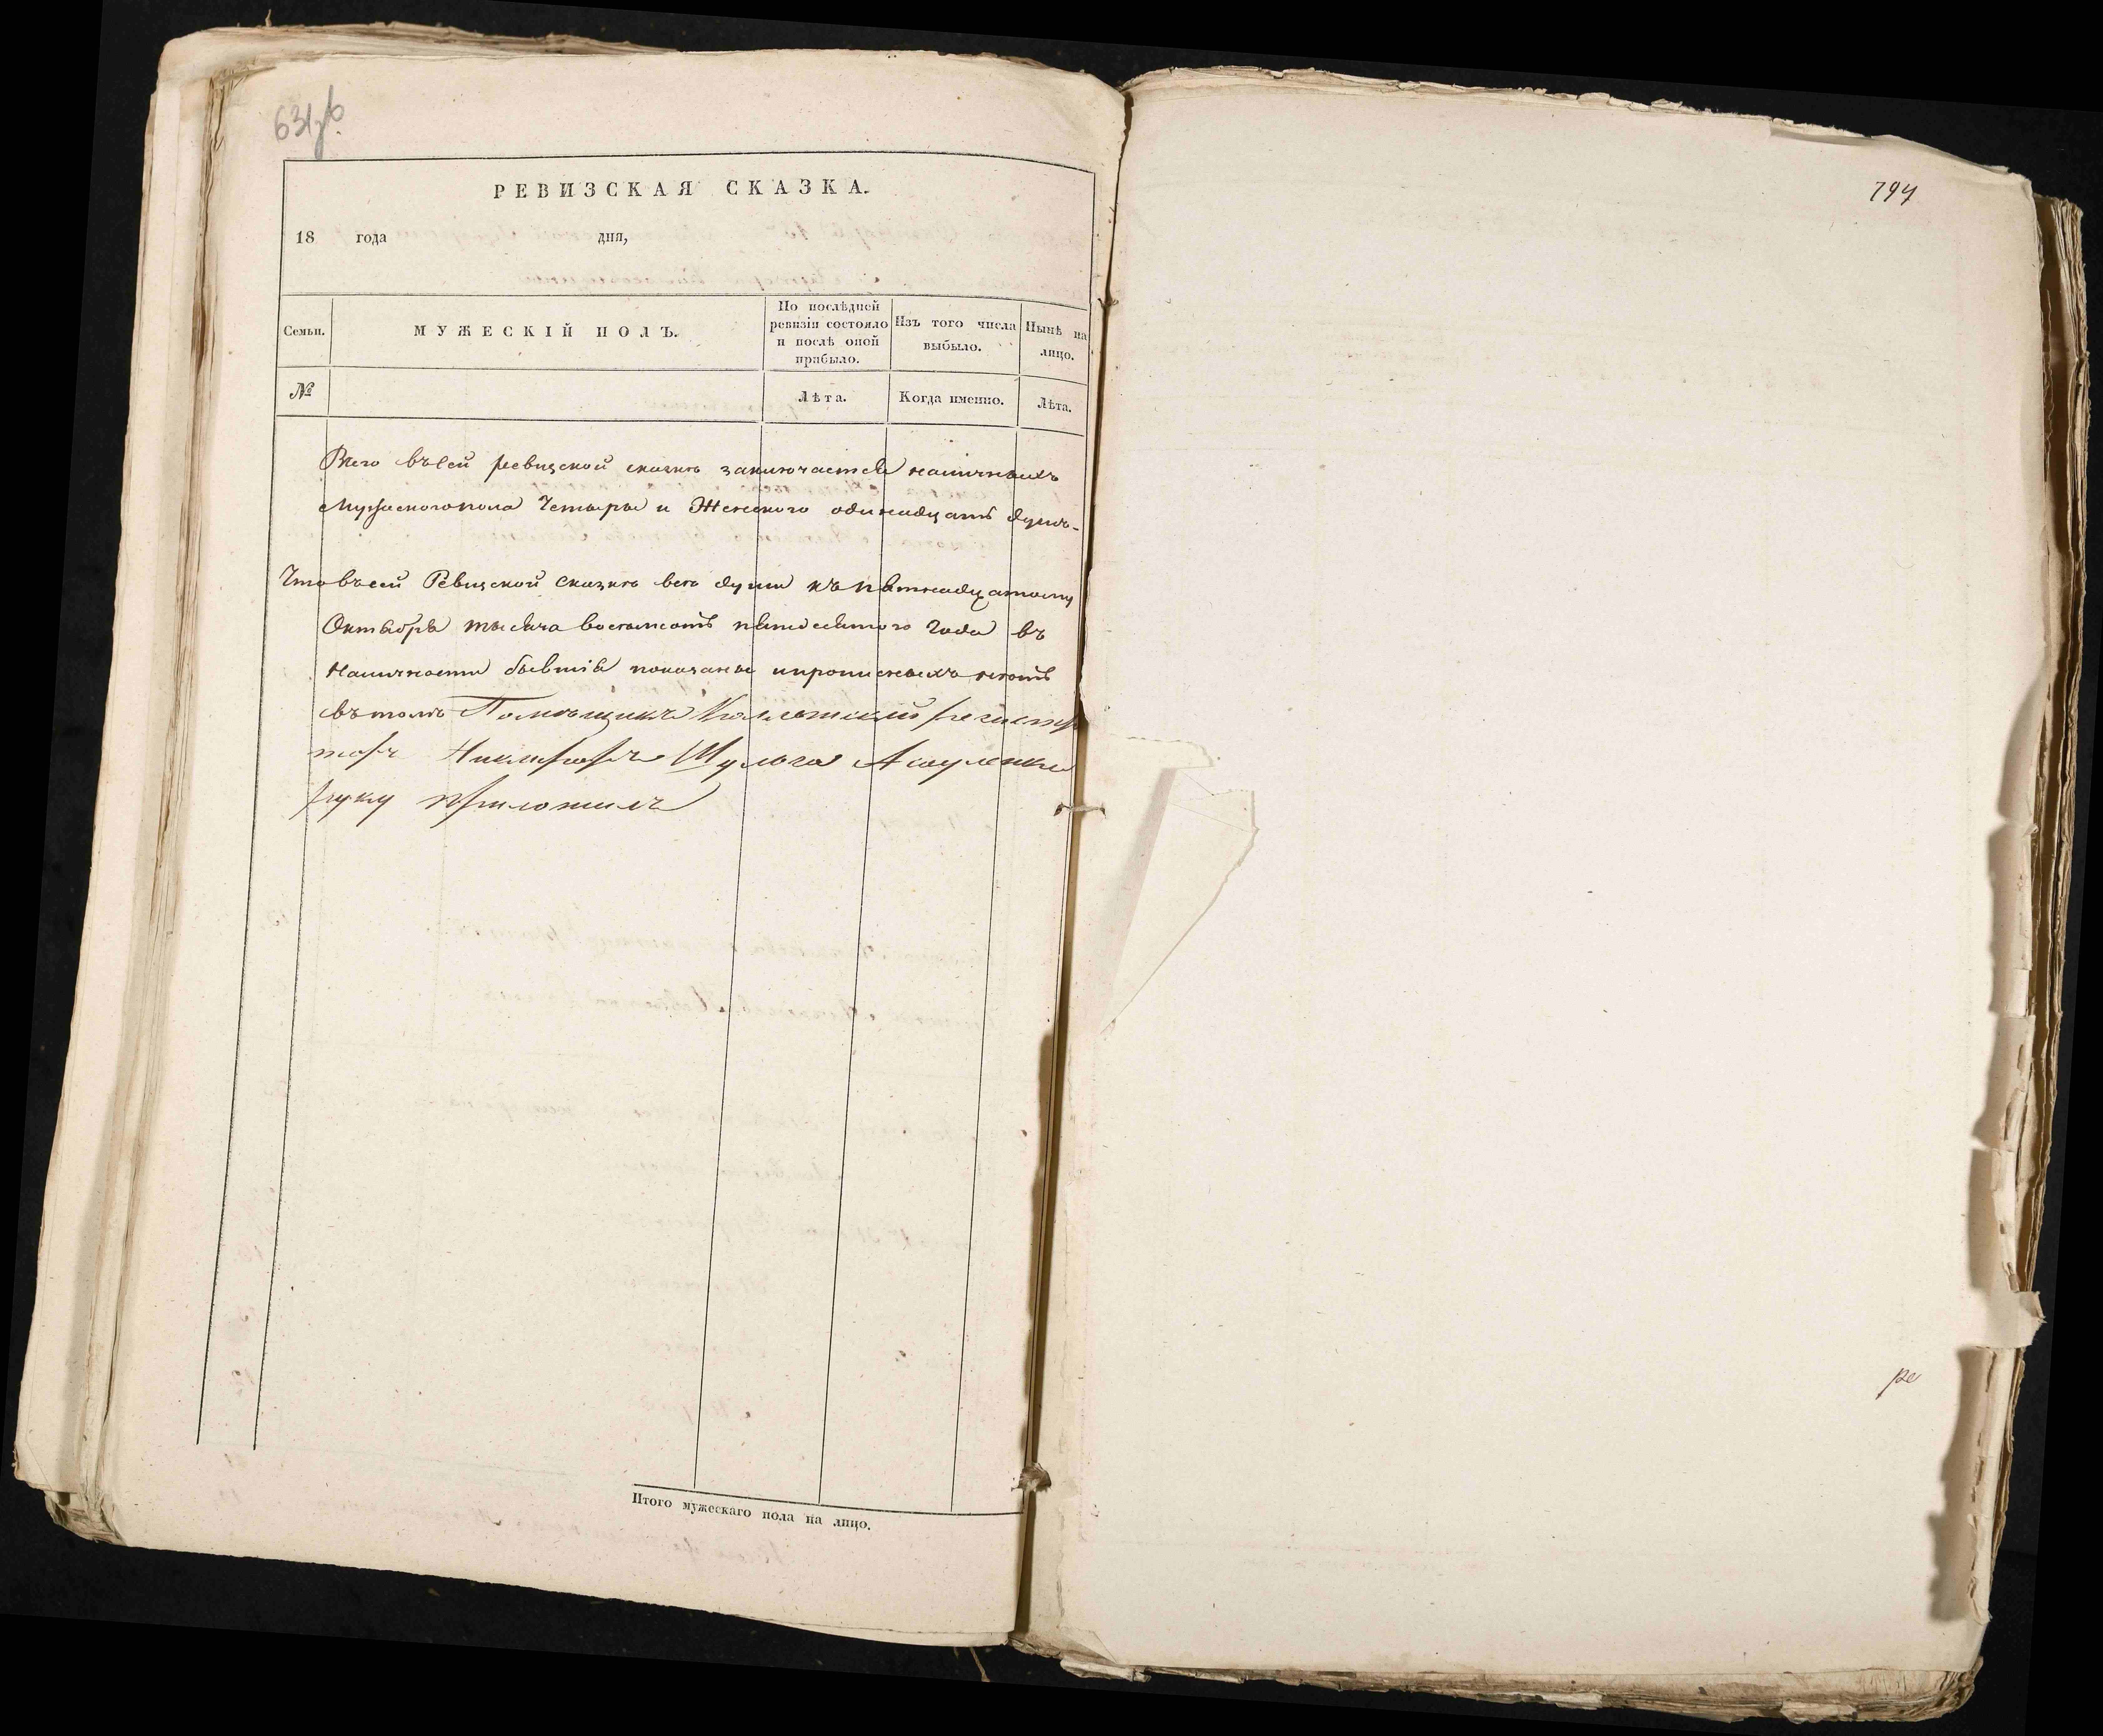 РЕВИЗСКАЯ СКАЗКА.
18 года дня,
Семьи.
МУЖЕСКІЙ ПОЛЪ.
По послѣдней
ревизіи состояло
и послѣ оной
прибыло.
Изъ того числа
выбыло.
Нынѣ на
лицо.
№
Лѣта.
Когда именно.
Лѣта.
Всего въ сей ревизской сказкѣ заключается наличныхъ
Мужескаго пола Четыре и Женского одинадцать душъ-
Что въ сей Ревизской Сказкѣ всѣ души къ пятнадцатому
Октября тысяча восемсотъ пятдесятого Года въ
Наличности бывшія показаны и прописныхъ нетъ
въ томъ Помѣщикъ Колежский регистр
торъ Никифоръ Шульга
руку приложилъ
Итого мужескаго пола на лицо.
794